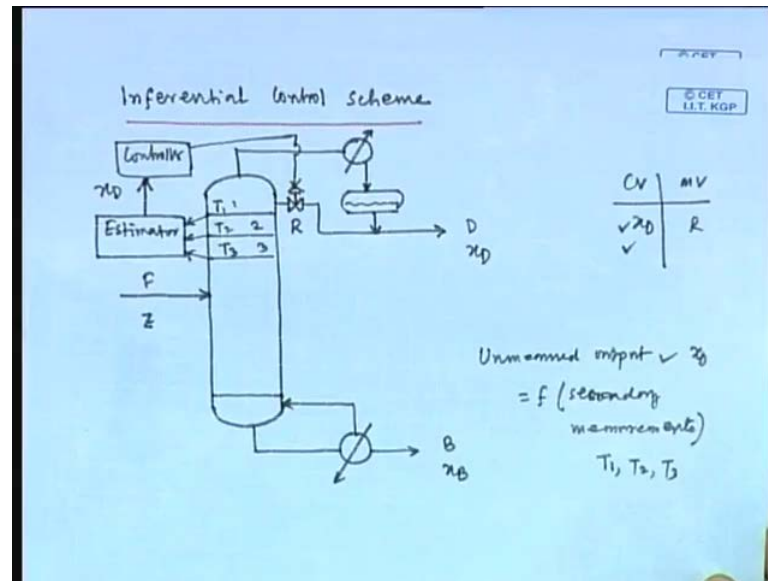 Inferential Control Scheme
© CET
I.I.T. KGP
Controller
xD
Estimator
T1 1
T2 2
T3 3
R
D
xD
F
Z
B
xB
CV MV
✓ xD R
✓
Unmeasured output ✓ xD
= f (secondary
measurements)
T1, T2, T3